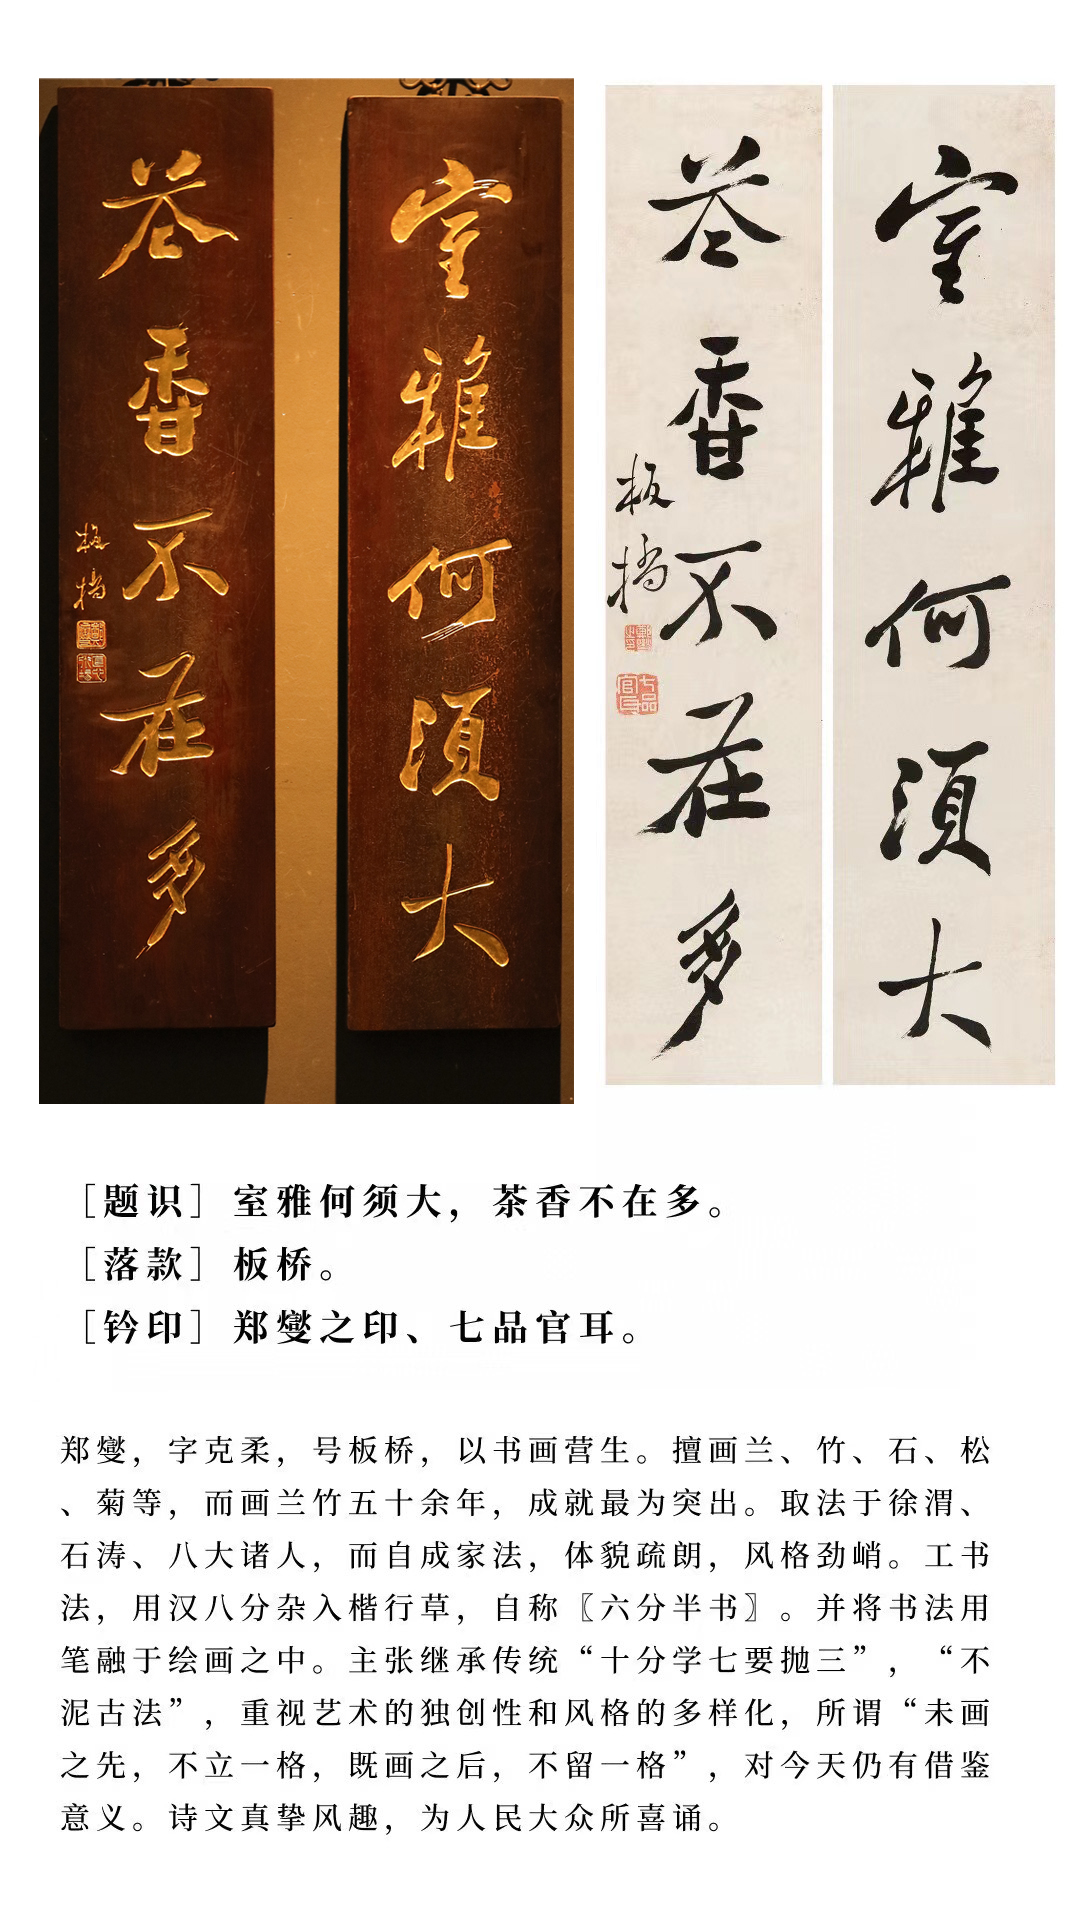 室雅何須大
茶香不在多
板橋
室雅何須大
茶香不在多
板橋
七品官耳
［题识］室雅何须大，茶香不在多。
［落款］板桥。
［钤印］郑燮之印、七品官耳。
郑燮，字克柔，号板桥，以书画营生。擅画兰、竹、石、松
、菊等，而画兰竹五十余年，成就最为突出。取法于徐渭、
石涛、八大诸人，而自成家法，体貌疏朗，风格劲峭。工书
法，用汉八分杂入楷行草，自称〖六分半书〗。并将书法用
笔融于绘画之中。主张继承传统“十分学七要抛三”，“不
泥古法”，重视艺术的独创性和风格的多样化，所谓“未画
之先，不立一格，既画之后，不留一格”，对今天仍有借鉴
意义。诗文真挚风趣，为人民大众所喜诵。